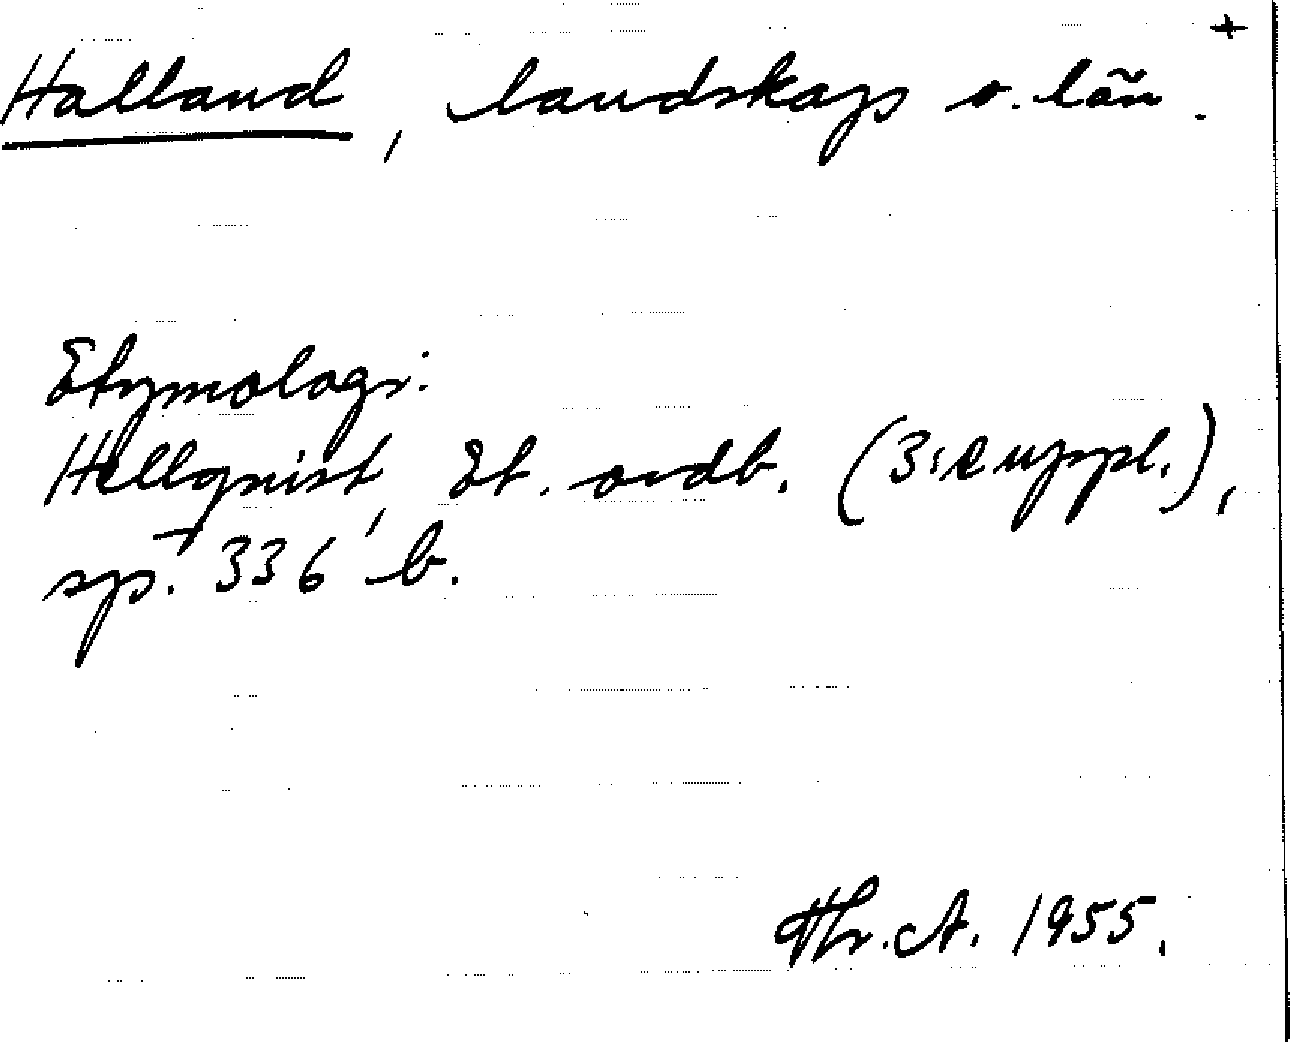 +
Halland, landskap o. län.
Etymologi:
Hellquist, Et. ordb. (3:e uppl.),
sp. 336 b.
Hr. A. 1955.